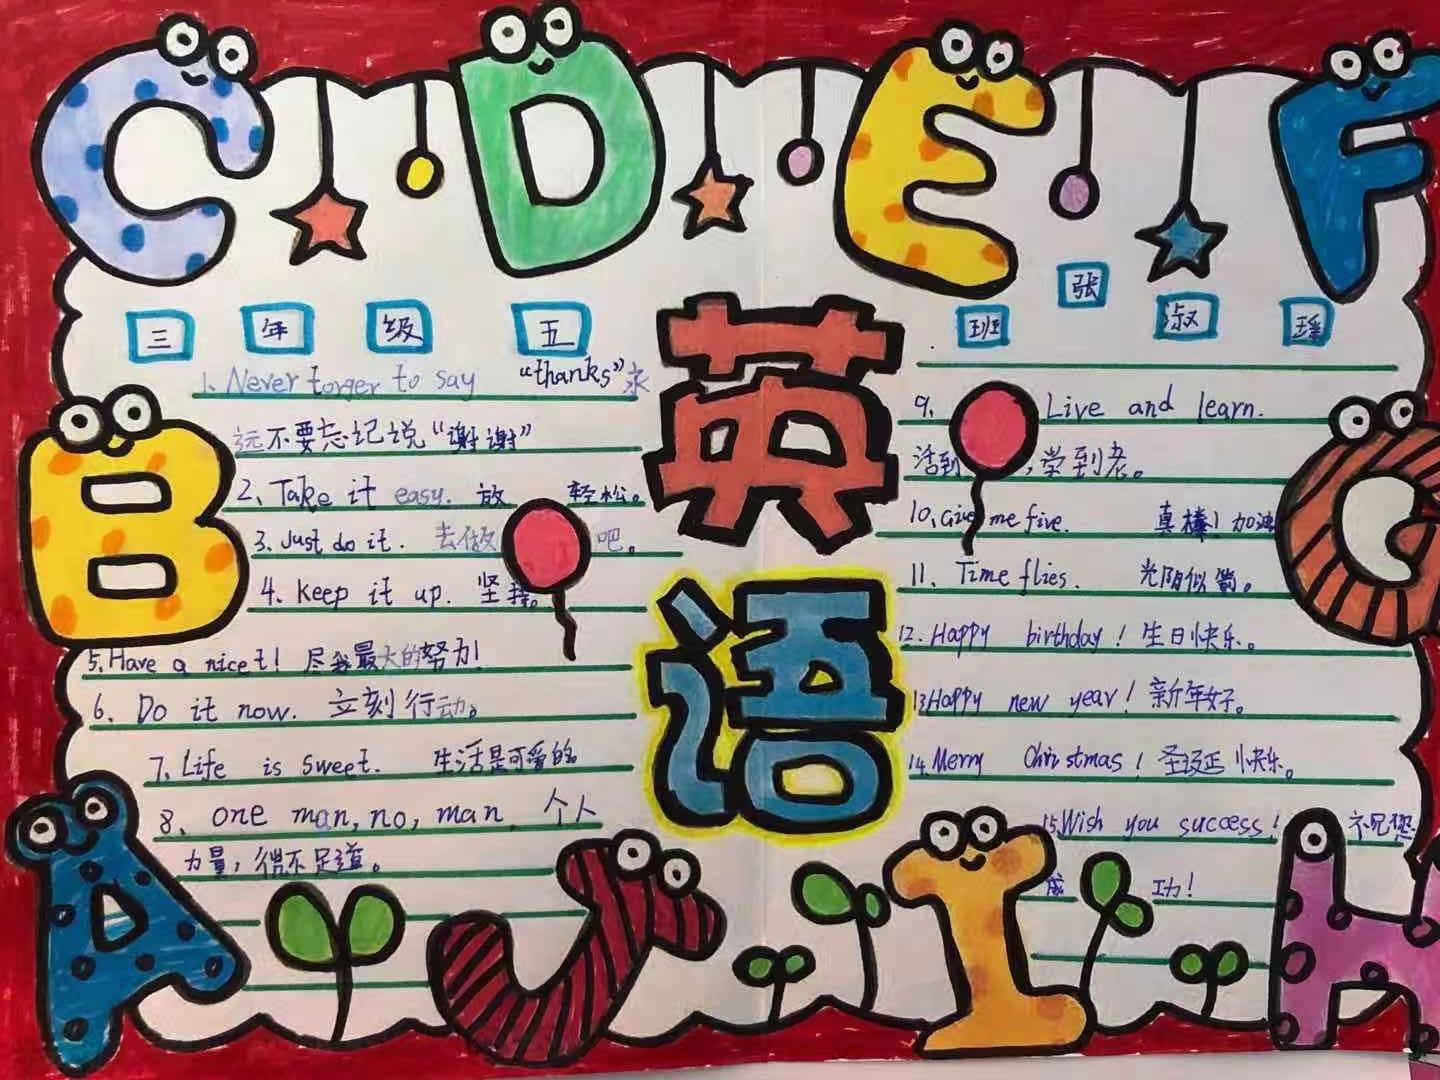 C D E F
三 年 级 五 班 张 淑 瑶
B
A
英
语
1. Never torger to say "thanks"永
远不要忘记说"谢谢"
2、Take it easy. 放 轻松。
3、Just do it. 去做 吧。
4、Keep it up. 坚持。
5、Have a nicet! 尽我最大的努力!
6、Do it now. 立刻行动。
7、Life is sweet. 生活是可爱的
8、one man, no, man. 个人
力量，微不足道。
9、Live and learn.
活到 ，学到老。
10、Give me five. 真棒! 加油
11、Time flies. 光阴似箭。
12、Happy birthday! 生日快乐。
13、Happy new year! 新年好。
14、Merry Christmas! 圣诞 快乐。
15、Wish you success!
成 功!
G
J I H